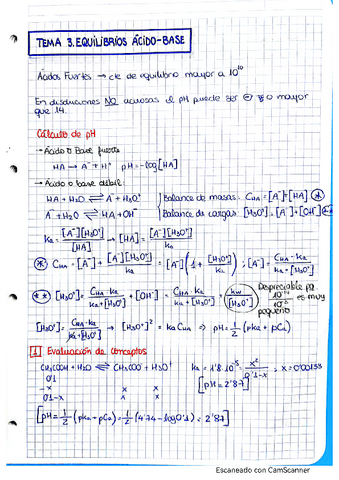 TEMA 3. EQUILIBRIOS ÁCIDO-BASE
Ácidos Fuertes → cte de equilibrio mayor a 10¹⁰
En disoluciones NO acuosas el pH puede ser ⊖ o mayor
que 14.
Cálculo de pH
→ Ácido o Base fuerte
HA → A⁻ + H⁺ pH = -log[HA]
→ Ácido o base débil:
HA + H₂O ⇌ A⁻ + H₃O⁺ } Balance de masas: C_HA = [A⁻] + [HA] *
A⁻ + H₂O ⇌ HA + OH⁻ } Balance de cargas: [H₃O⁺] = [A⁻] + [OH⁻] **
Ka = [A⁻][H₃O⁺]/[HA] → [HA] = [A⁻][H₃O⁺]/Ka
* C_HA = [A⁻] + [A⁻][H₃O⁺]/Ka = [A⁻](1 + [H₃O⁺]/Ka) ; [A⁻] = C_HA·Ka/(Ka + [H₃O⁺])
** [H₃O⁺] = C_HA·Ka/(Ka + [H₃O⁺]) + [OH⁻] = C_HA·Ka/(Ka + [H₃O⁺]) + Kw/[H₃O⁺] Despreciable es muy pequeño
[H₃O⁺] = C_HA·Ka/(Ka + [H₃O⁺]) → [H₃O⁺]² = Ka C_HA ⇒ pH = 1/2 (pKa + pCa)
1 Evaluación de conceptos
CH₃COOH + H₂O ⇌ CH₃COO⁻ + H₃O⁺ Ka = 1'8·10⁻⁵ = x²/(0'1-x) ; x = 0'00133
0'1
-x x x [pH = 2'87]
0'1-x
[pH = 1/2 (pKa + pCa) = 1/2 (4'74 - log0'1) = 2'87]
Escaneado con CamScanner